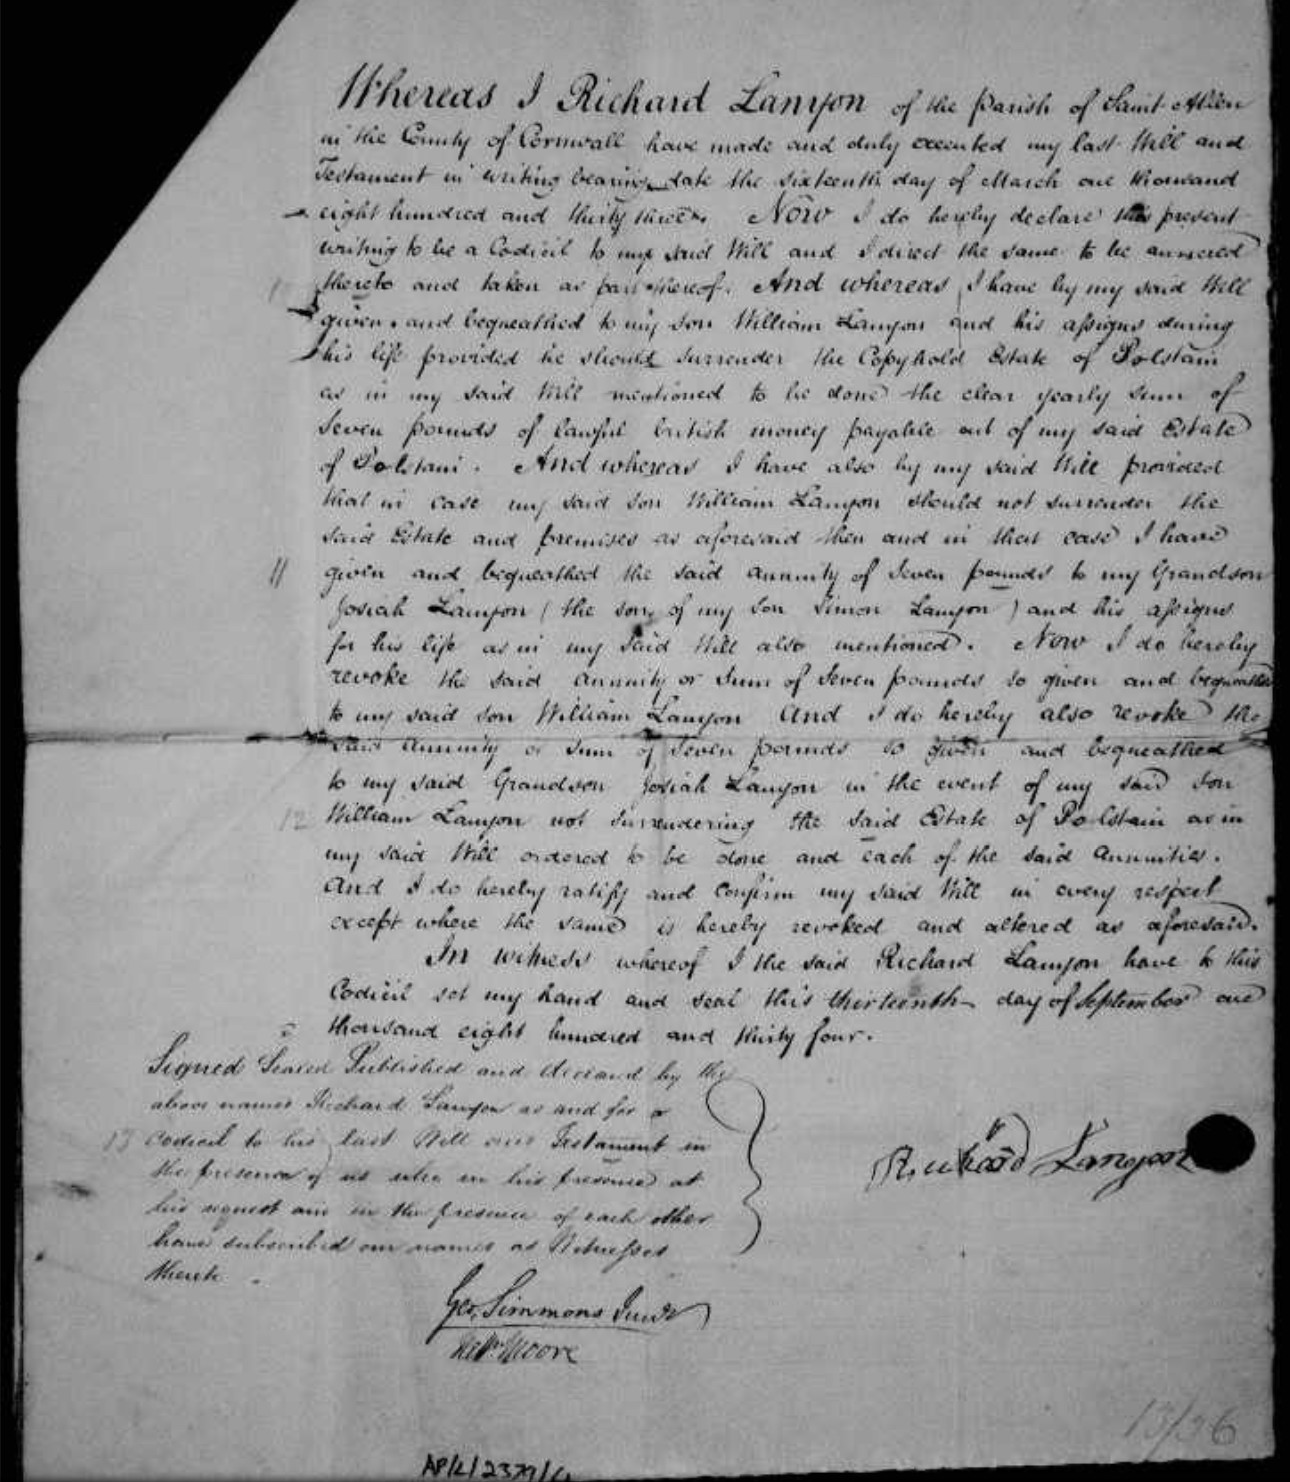 Whereas I Richard Lanyon of the Parish of Saint Allen
in the County of Cornwall have made and duly executed my last Will and
Testament in writing bearing date the sixteenth day of March one thousand
eight hundred and thirty three. Now I do hereby declare this present
writing to be a Codicil to my said Will and I direct the same to be annexed
thereto and taken as part thereof. And whereas I have by my said Will
given and bequeathed to my son William Lanyon and his assigns during
his life provided he should surrender the Copyhold Estate of Polstain
as in my said Will mentioned to be done the clear yearly sum of
Seven pounds of lawful british money payable out of my said Estate
of Polstain. And whereas I have also by my said Will provided
that in case my said son William Lanyon should not surrender the
said Estate and premises as aforesaid then and in that case I have
11 given and bequeathed the said annuity of Seven pounds to my Grandson
Josiah Lanyon (the son of my son Simon Lanyon) and his assigns
for his life as in my said Will also mentioned. Now I do hereby
revoke the said annuity or sum of Seven pounds so given and bequeathed
to my said son William Lanyon And I do hereby also revoke the
said annuity or sum of Seven pounds so given and bequeathed
to my said Grandson Josiah Lanyon in the event of my said son
12 William Lanyon not surrendering the said Estate of Polstain as in
my said Will ordered to be done and each of the said annuities.
And I do hereby ratify and confirm my said Will in every respect
except where the same is hereby revoked and altered as aforesaid.
In witness whereof I the said Richard Lanyon have to this
Codicil set my hand and seal this thirteenth day of September one
thousand eight hundred and thirty four.
Signed Sealed Published and declared by the
above named Richard Lanyon as and for a
13 Codicil to his last Will and Testament in
the presence of us who in his presence at
his request and in the presence of each other
have subscribed our names as Witnesses
thereto.
Richard Lanyon
Geo. Simmons Junr
Moore
13/36
AP/L/2379/